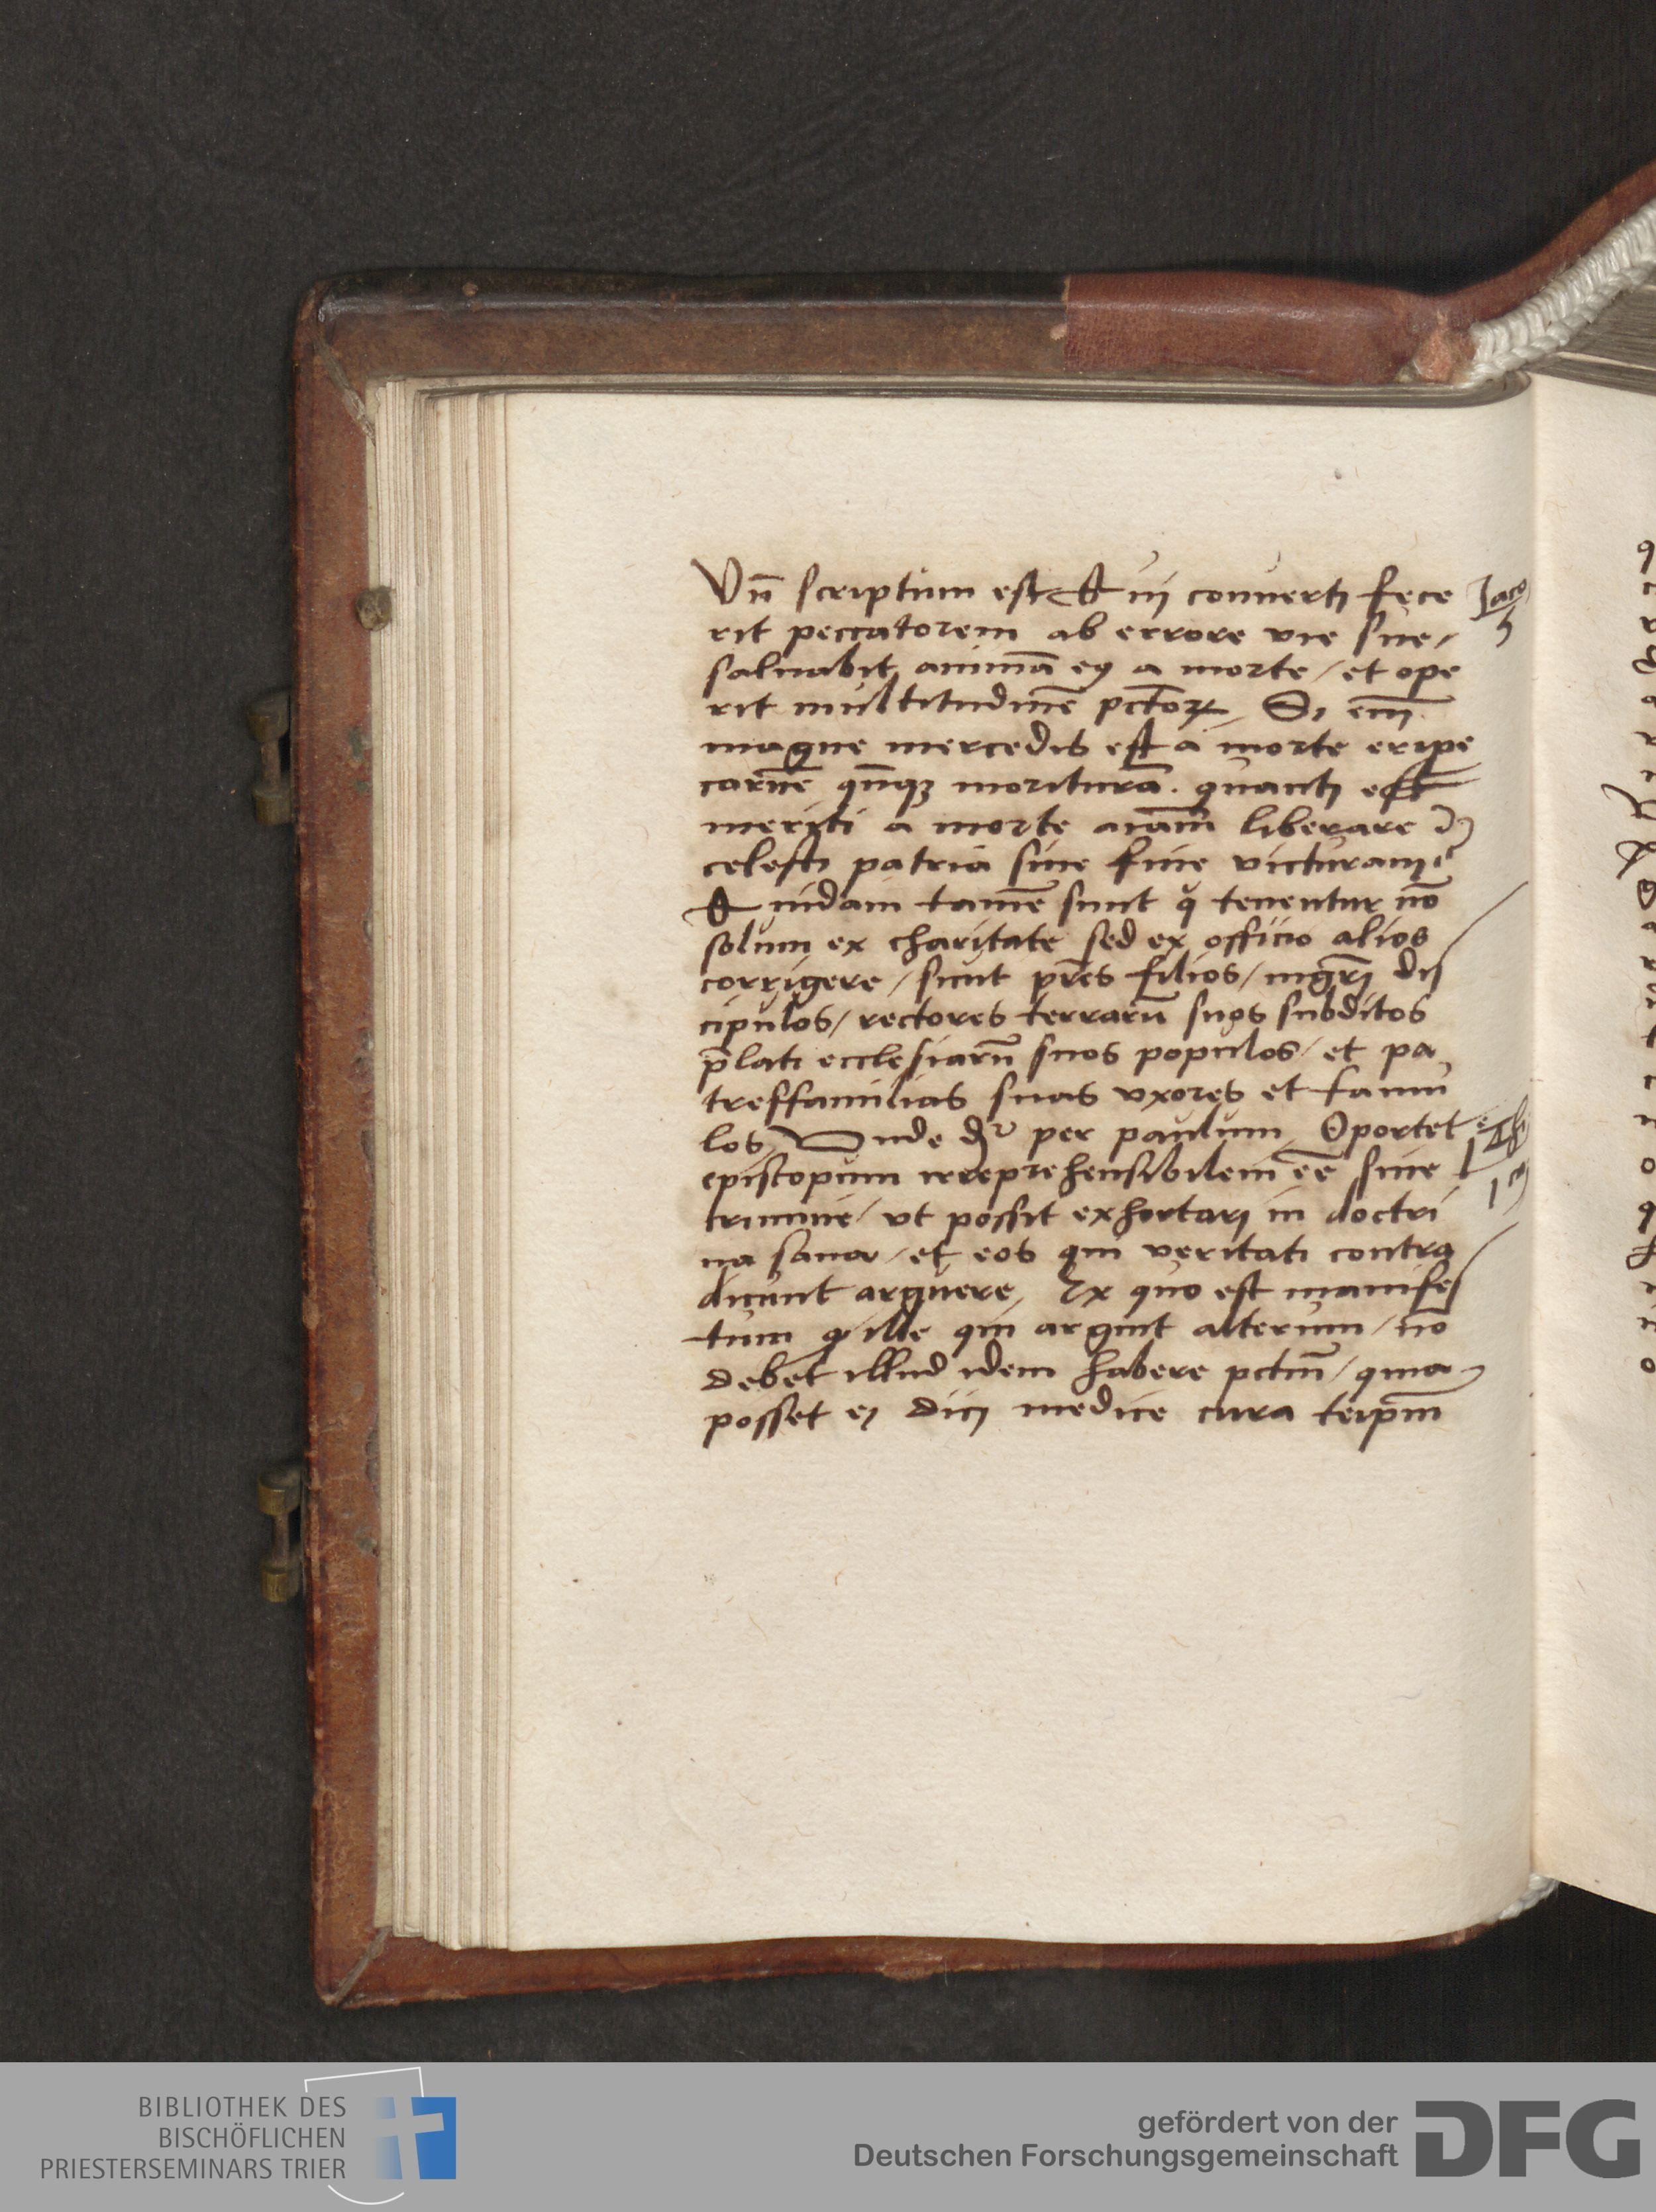 Vn̄ scriptum est Qui conuerti fece
rit peccatorem ab errore vie sue /
saluabit animā eꝯ a morte / et ope
rit multitudinē pctōꝝ Si em̄
magne mercedis est a morte eripe
carnē qn̄qꝫ moriturā . quanti est
meriti a morte aīam liberare
celesti patria sine fine victuram
Quidam tamē sunt q tenentur nō
solum ex charitate sed ex officio alios
corrigere / sicut pr̄es filios / mgr̄i dis
cipulos / rectores terrarū suos subditos
p̄lati ecclesiarū suos populos / et pa
tresfamilias suas vxores et famu
los Vnde dr̄ per paulum Oportet
episcopum irreprehensibilem eē sine
crimine / vt possit exhortari in doctri
na sana / et eos qui veritati contra
dicunt arguere / Ex quo est manifes
tum ꝙ ille qui arguit alterum / nō
debet illud idem habere pctm̄ / quia
posset ei dici medice cura teip̄m
Jaco
5
BIBLIOTHEK DES
BISCHÖFLICHEN
PRIESTERSEMINARS TRIER
gefördert von der
Deutschen Forschungsgemeinschaft
DFG